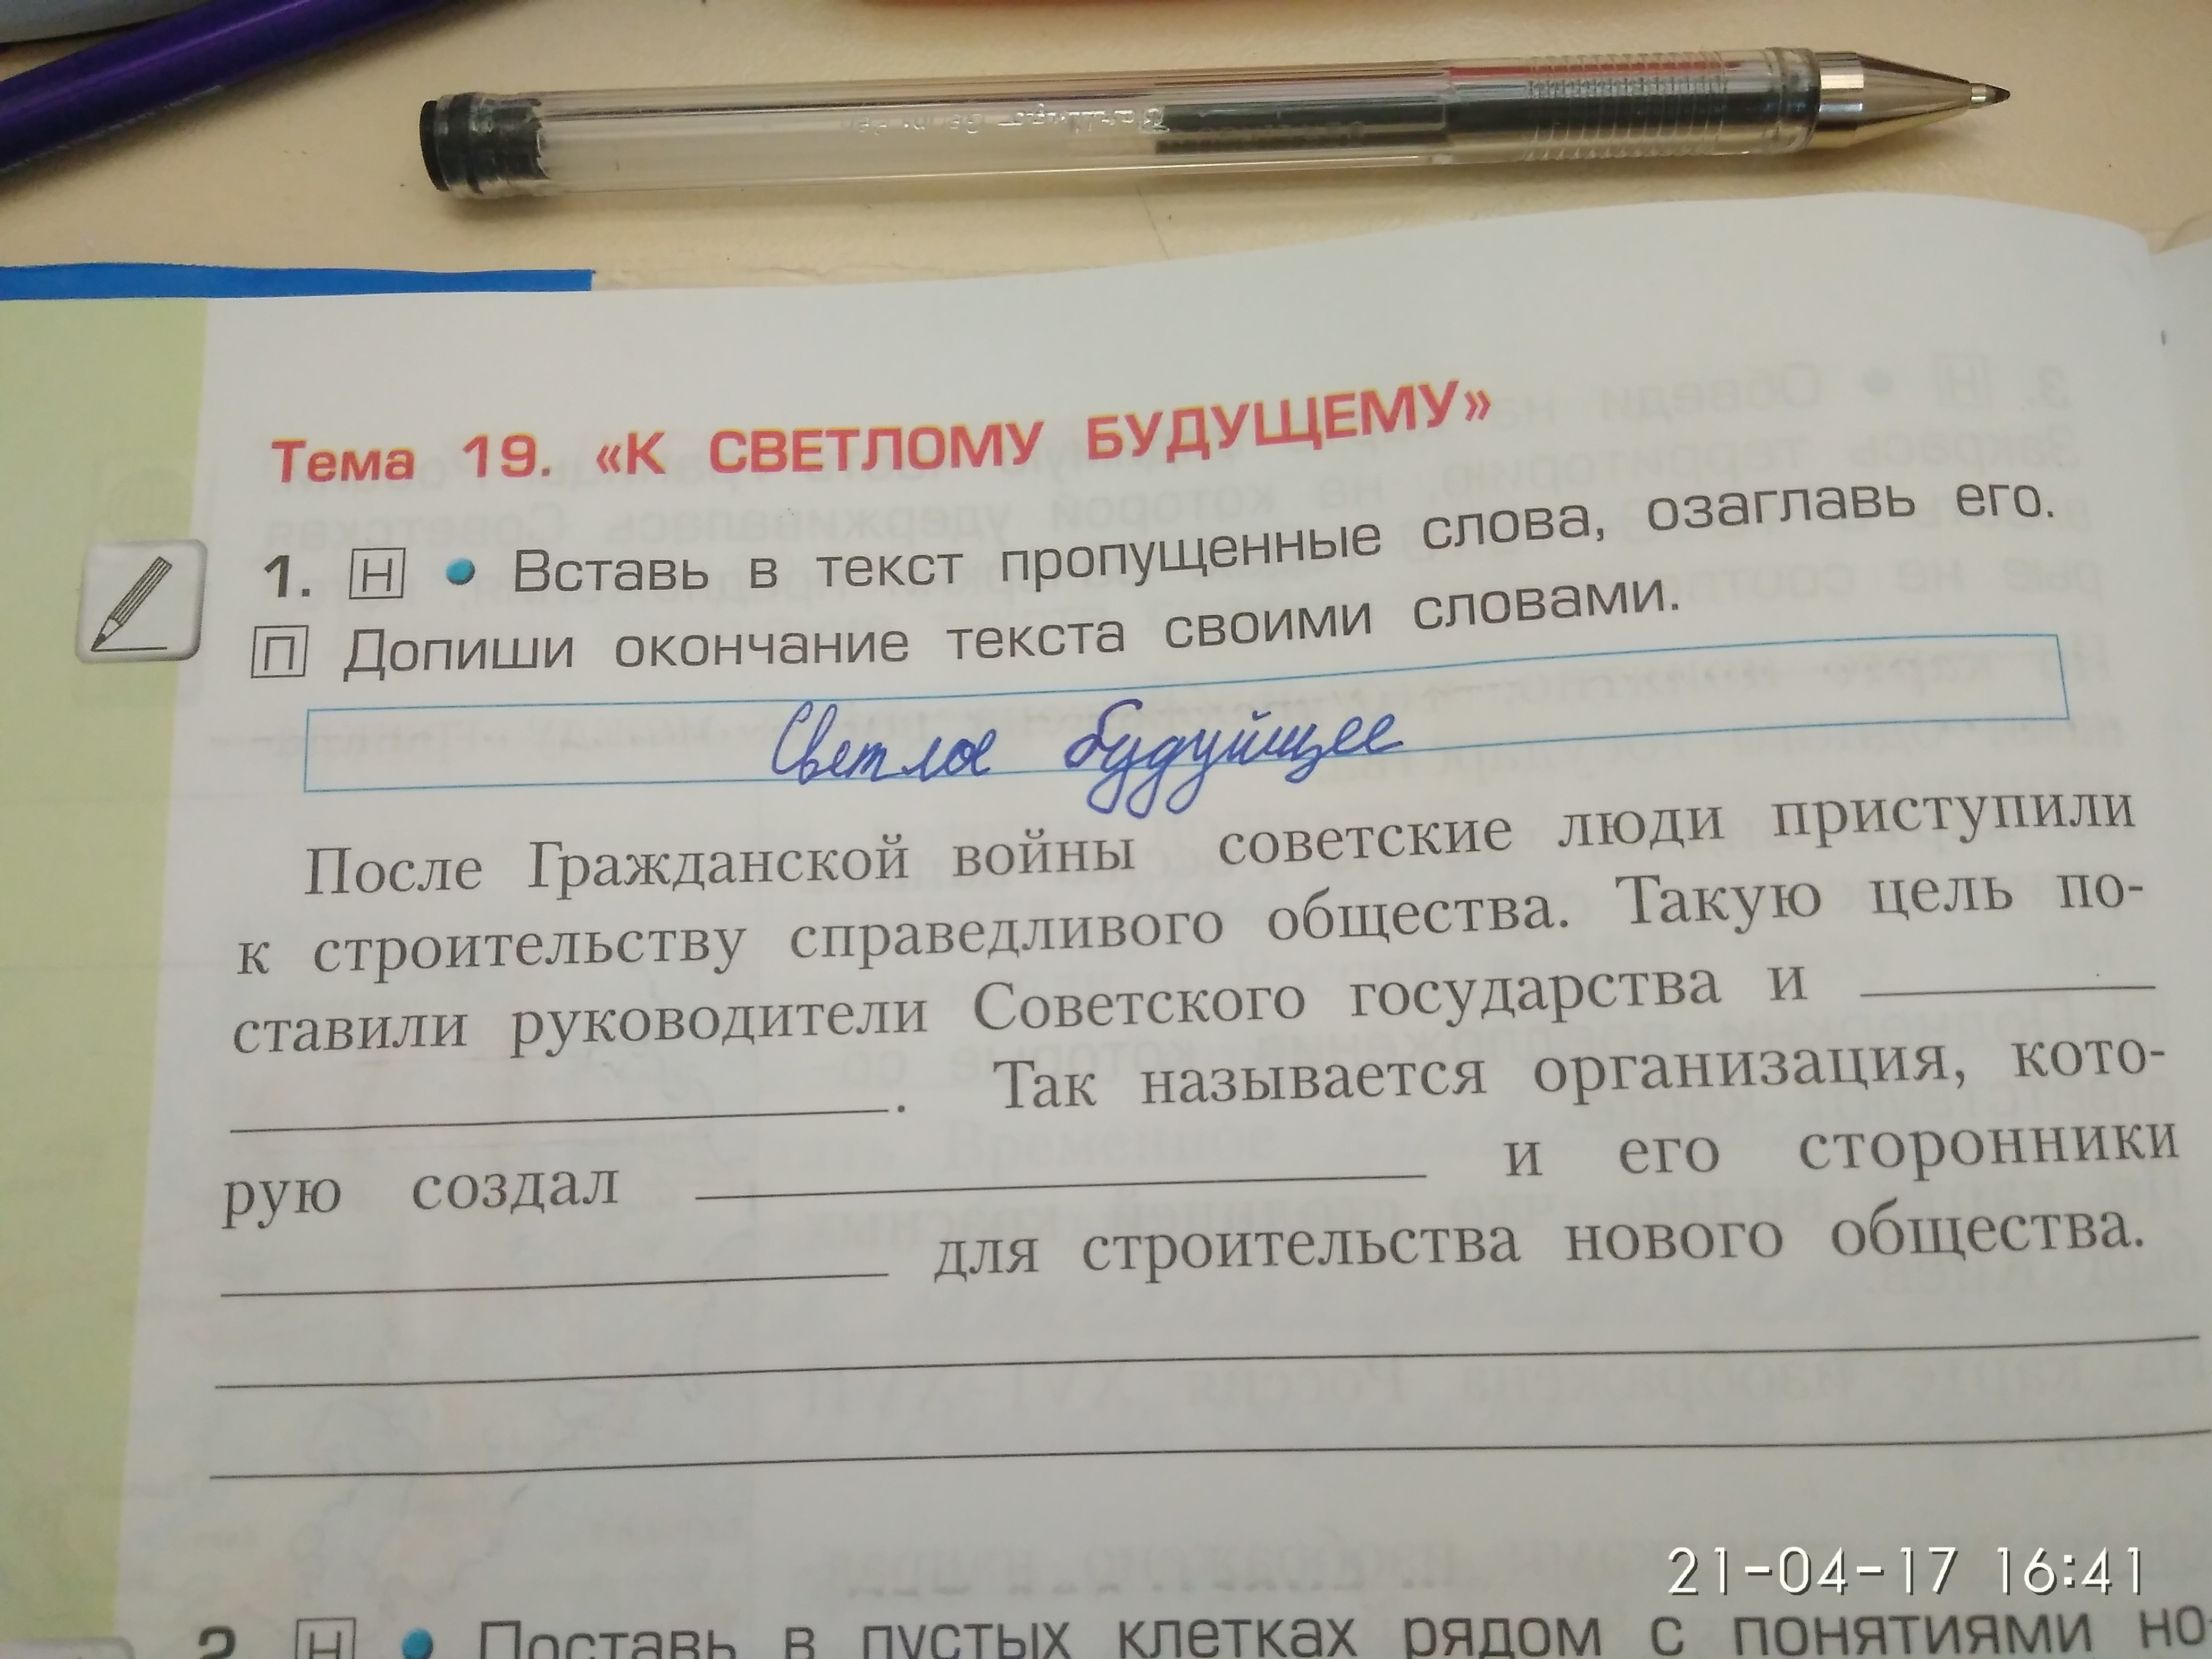 Тема 19. «К СВЕТЛОМУ БУДУЩЕМУ»
1. Н • Вставь в текст пропущенные слова, озаглавь его.
П Допиши окончание текста своими словами.
Светлое будуйщее
После Гражданской войны советские люди приступили
к строительству справедливого общества. Такую цель по-
ставили руководители Советского государства и
. Так называется организация, кото-
рую создал и его сторонники
для строительства нового общества.
21-04-17 16:41
2 Н • Поставь в пустых клетках рядом с понятиями но-